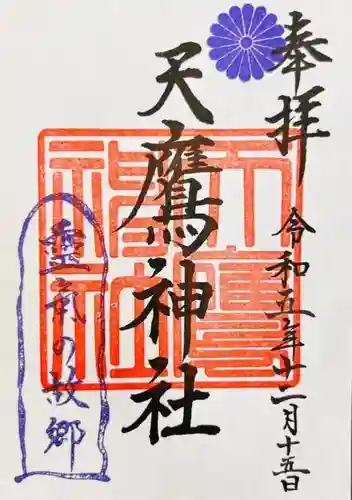 奉拝
令和五年十二月十五日
天鷹神社
天鷹神社
故郷